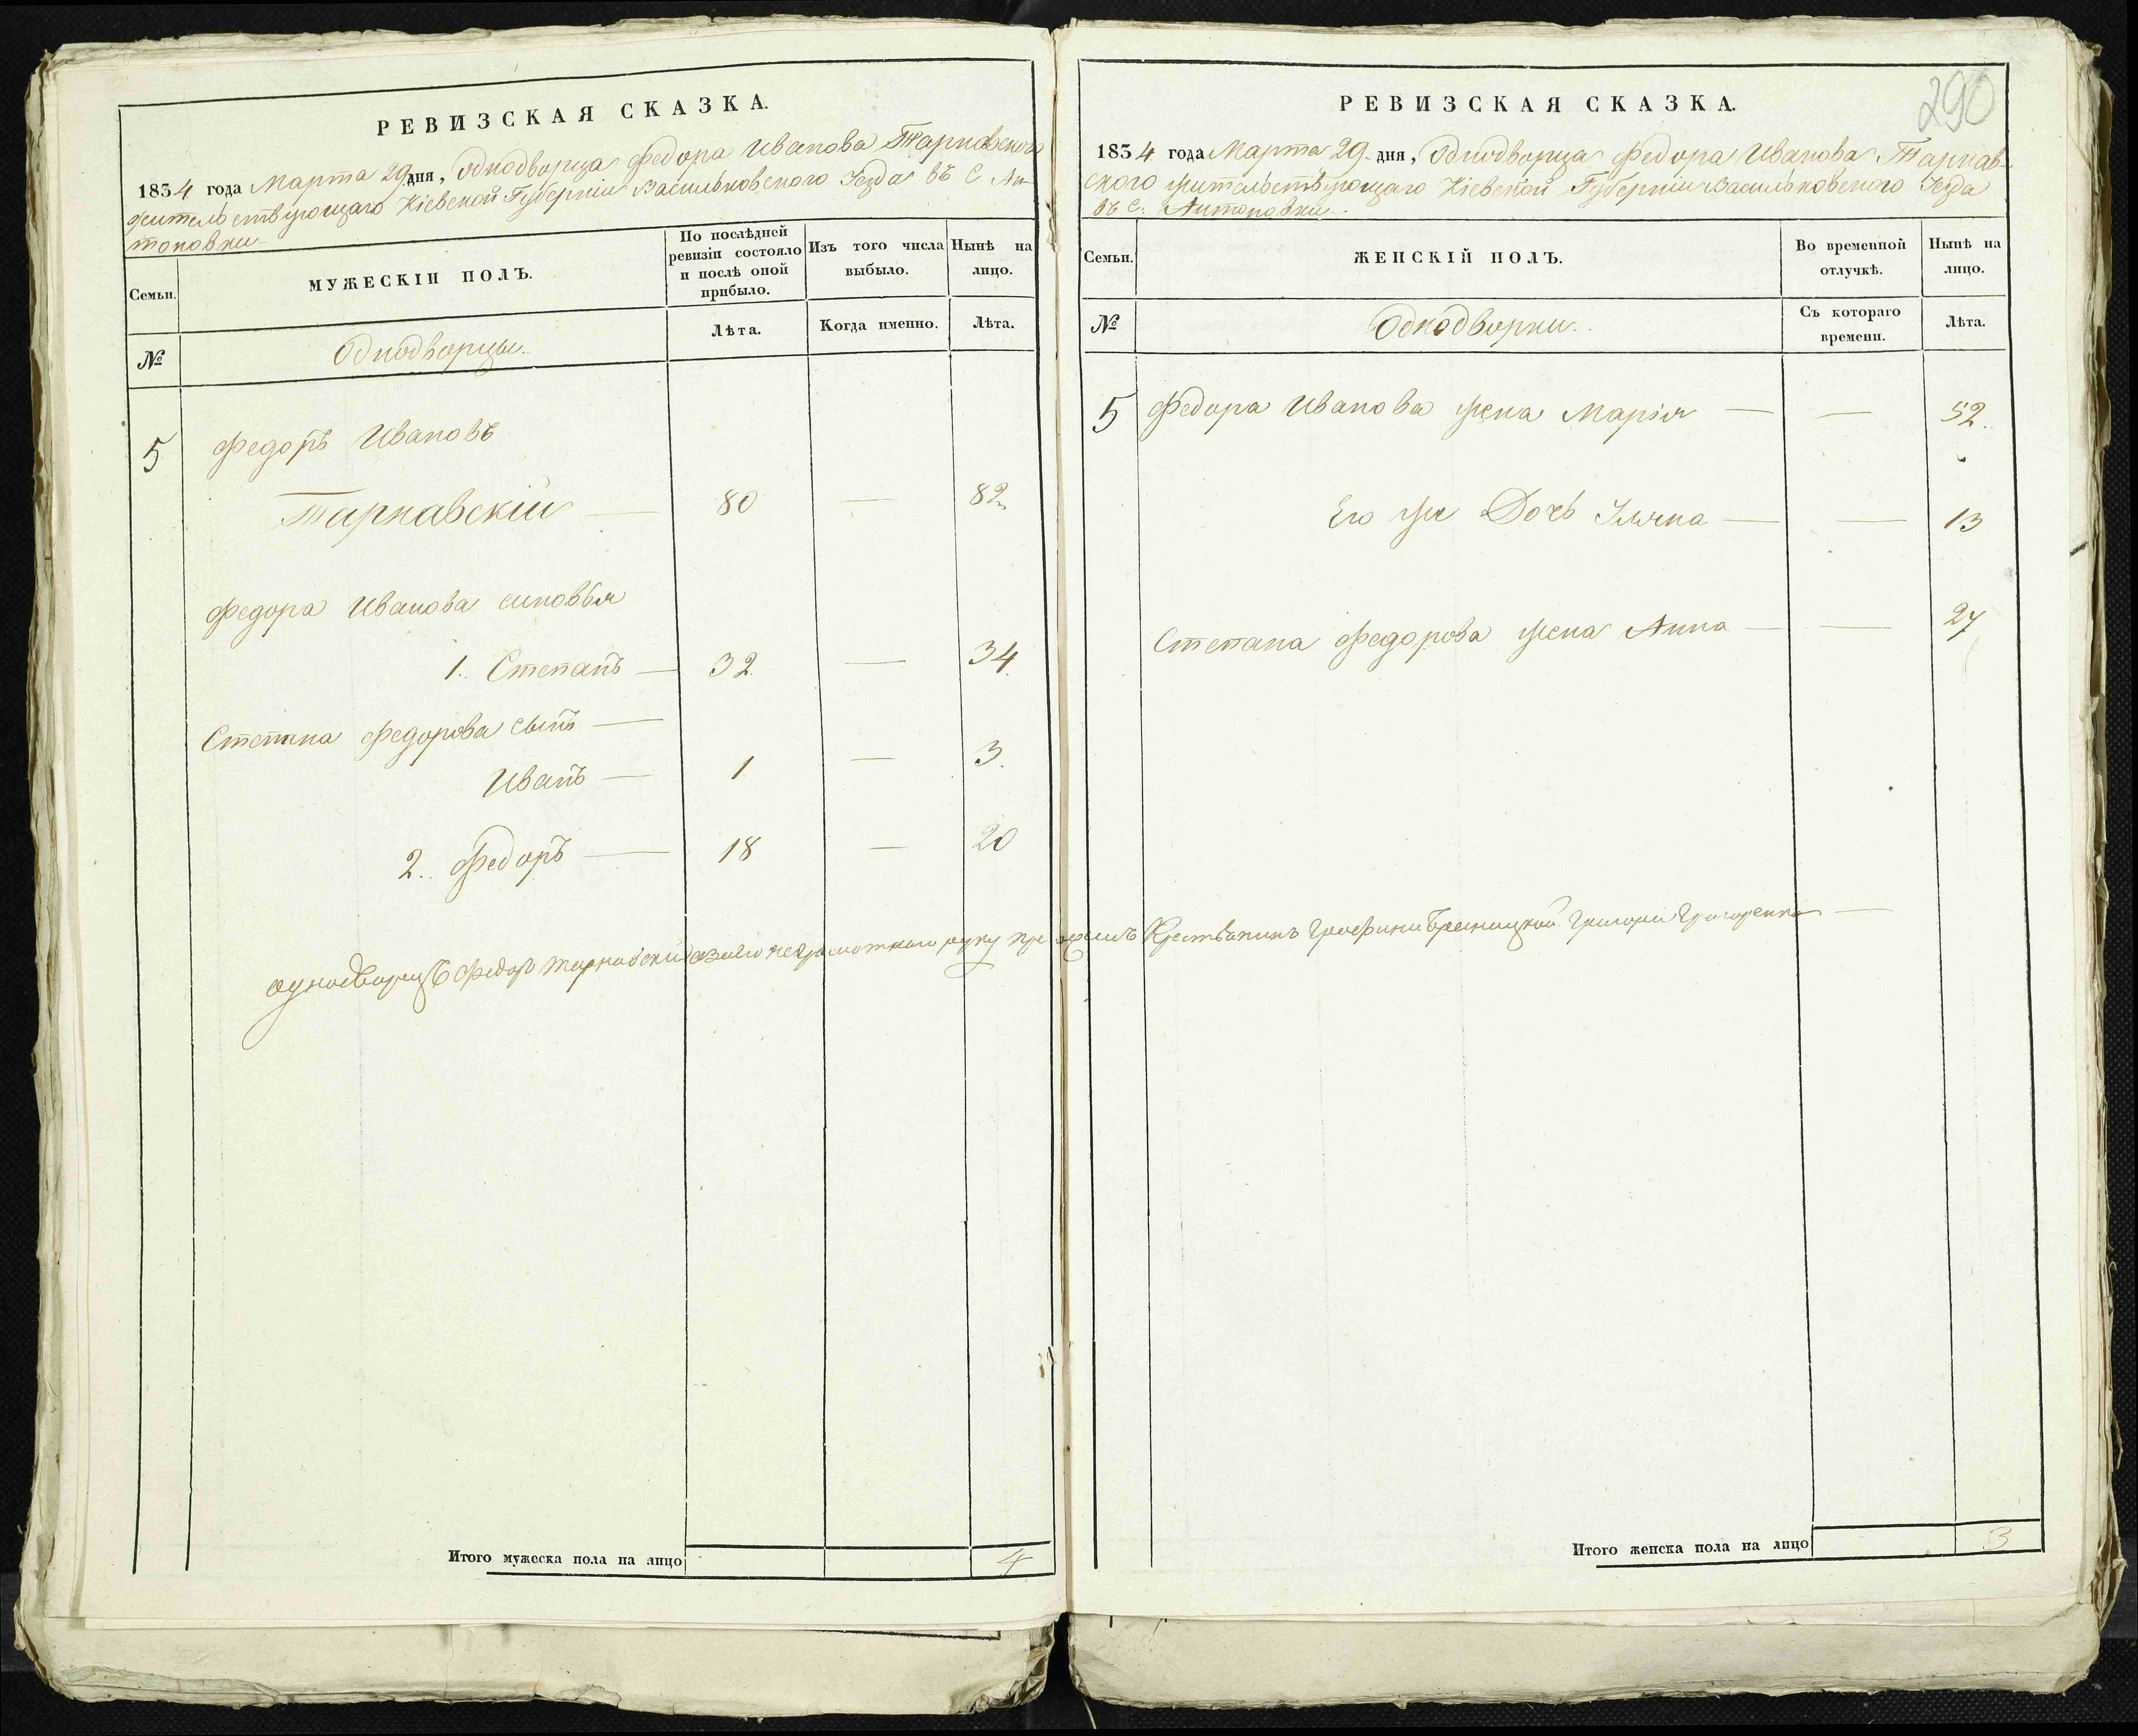 РЕВИЗСКАЯ СКАЗКА.
1834 года Марта 29 дня, Однодворца Федора Иванова Тарнавского
жительствующаго Кіевской Губерніи Васильковского Уезда въ С Ан-
тоновки
Семьи.
МУЖЕСКІЙ ПОЛЪ.
По послѣдней ревизіи состояло и послѣ оной прибыло.
Изъ того числа выбыло.
Нынѣ на лицо.
№
Однодворцы.
Лѣта.
Когда именно.
Лѣта.
5 Федоръ Ивановъ
Тарнавскій — 80 — 82
Федора Иванова синовья
1. Степанъ — 32. — 34.
Степана Федорова сынъ —
Иванъ — 1 — 3.
2. Федоръ — 18 — 20
Итого мужеска пола на лицо 4
290
РЕВИЗСКАЯ СКАЗКА.
1834 года Марта 29 дня, Однодворца Федора Иванова Тарнав-
ского жительствующаго Кіевской Губерніи Васильковского Уезда
въ С. Антоновки
Семьи.
ЖЕНСКІЙ ПОЛЪ.
Во временной отлучкѣ.
Нынѣ на лицо.
№
Однодворки.
Съ котораго времени.
Лѣта.
5 Федора Иванова жена Марія — — 52.
Его же Дочъ Уляна — — 13
Степана Федорова жена Анна — — 27
однодворецъ Федор Тарнавский а заего неграмотнаго руку приложилъ Крестьянинъ Графини Браницкой Григорей Григоренко —
Итого женска пола на лицо 3